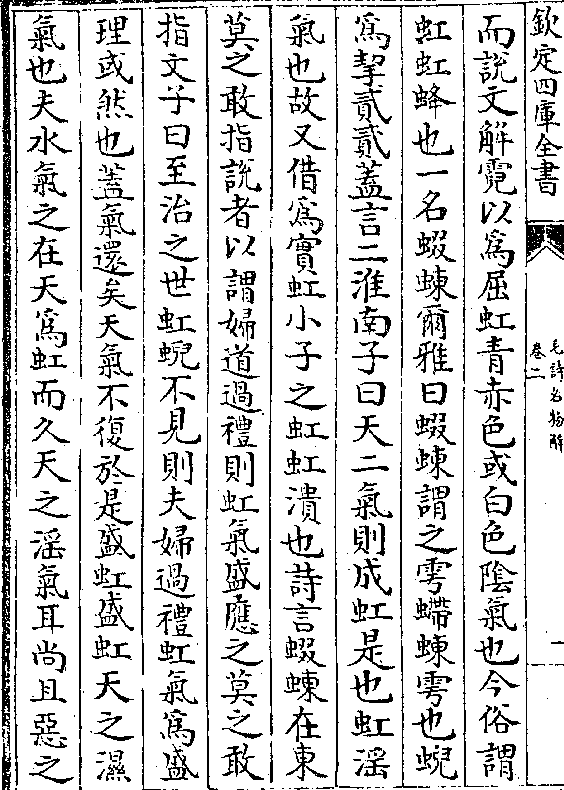 欽定四庫全書
毛詩名物解
卷二
一
而說文解霓以為屈虹青赤色或白色陰氣也今俗謂
虹虹蜂也一名蝃蝀爾雅曰蝃蝀謂之雩螮蝀雩也蜺
為挈貳貳蓋言二淮南子曰天二氣則成虹是也虹淫
氣也故又借為實虹小子之虹虹潰也詩言蝃蝀在東
莫之敢指說者以謂婦道過禮則虹氣盛應之莫之敢
指文子曰至治之世虹蜺不見則夫婦過禮虹氣為盛
理或然也蓋氣還矣天氣不復於是盛虹盛虹天之濕
氣也夫水氣之在天為虹而久天之淫氣耳尚且惡之